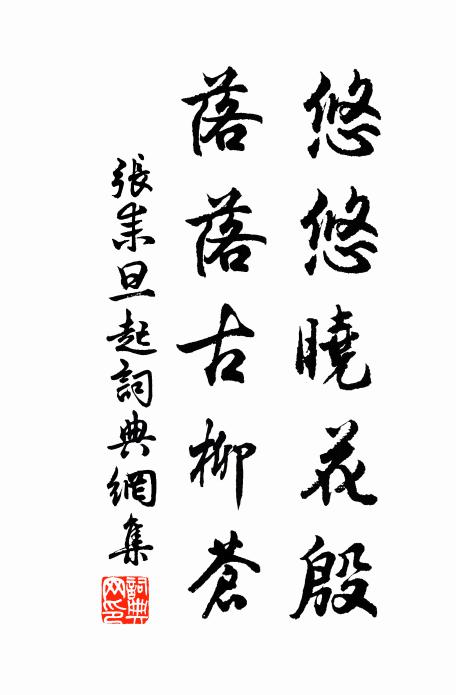 悠悠曉花殷
落落古柳蒼
張耒旦起詞典網集
詞典网印